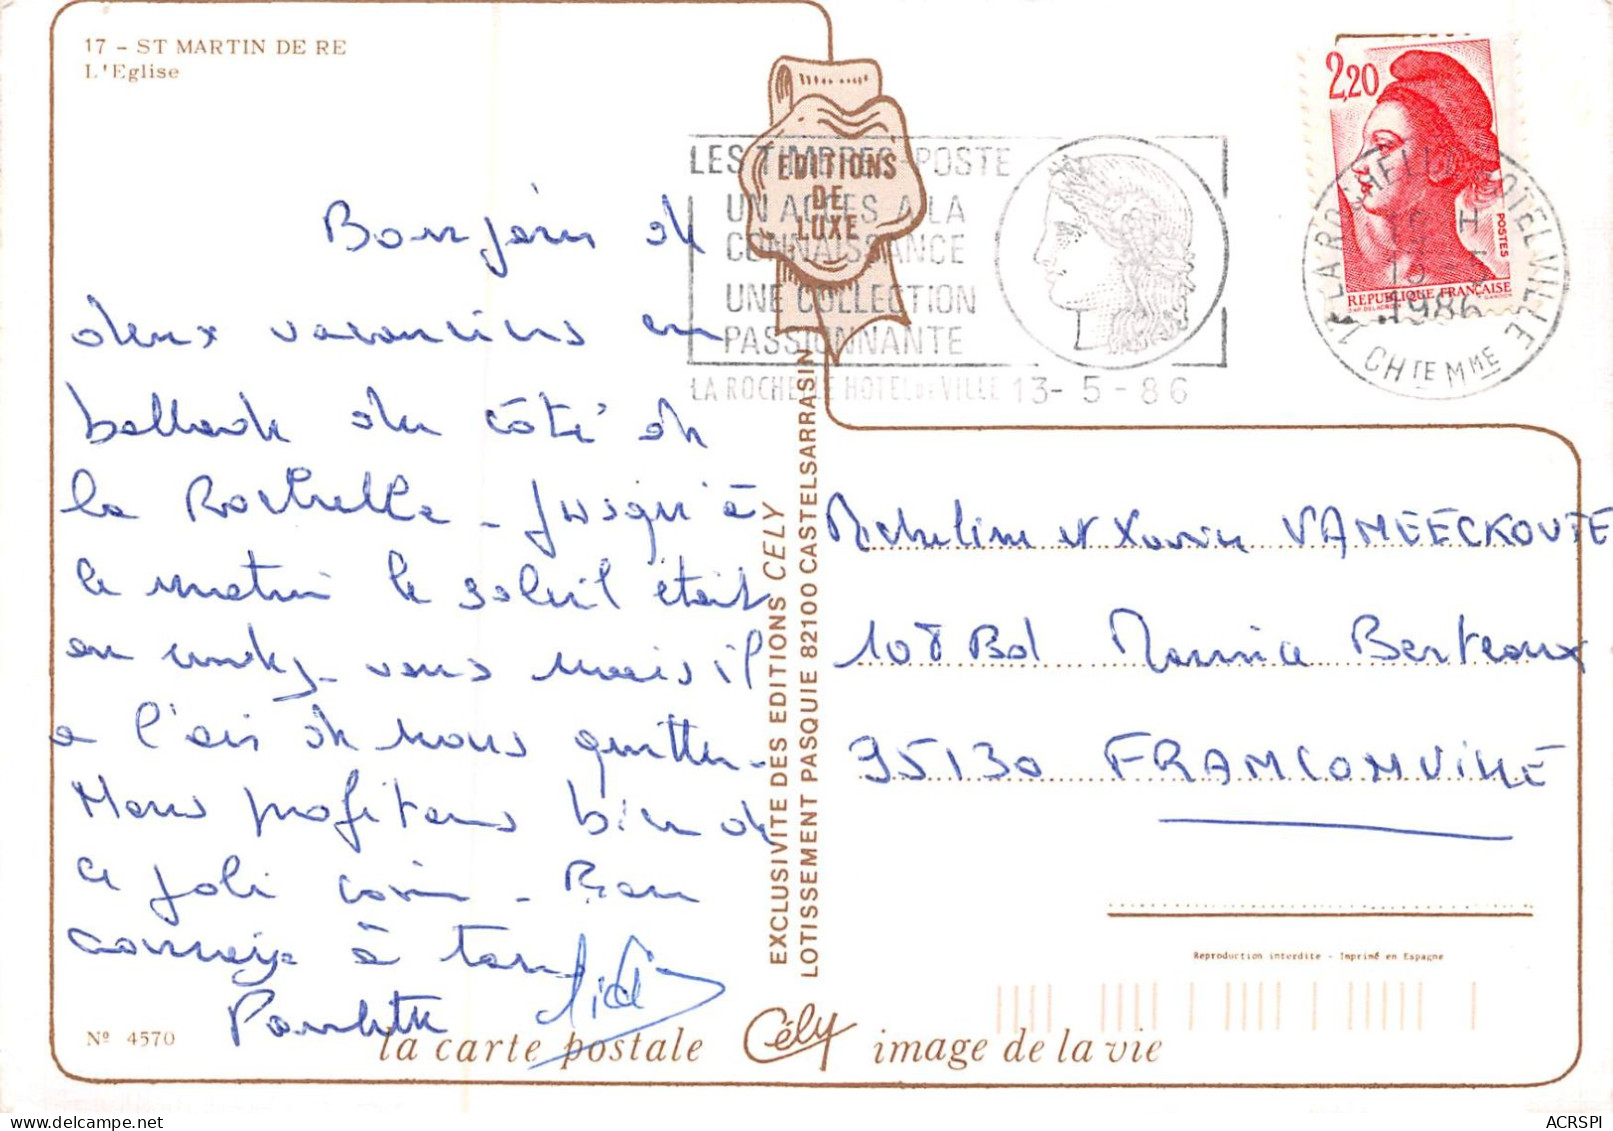 17 - ST MARTIN DE RE
L'Eglise
2,20
POSTES
REPUBLIQUE FRANÇAISE
EDITIONS
DE
LUXE
LES TIMBRES-POSTE
UN ACCES A LA
CONNAISSANCE
UNE COLLECTION
PASSIONNANTE
LA ROCHELLE HOTEL DE VILLE 13-5-86
LA ROCHELLE HOTEL VILLE
H
1986
CHTE MME
Bonjour de
deux vacanciers en
ballade du côté de
la Rochelle - Jusqu'à
ce matin le soleil était
au rendez-vous mais il
a l'air de nous quitter -
Nous profitons bien de
ce joli coin - Bon
courage à tous
Paulette
EXCLUSIVITE DES EDITIONS CELY
LOTISSEMENT PASQUIE 82100 CASTELSARRASIN
Micheline et Xavier VAMEECKOUTE
108 Bd Maurice Berteaux
95130 FRANCONVILLE
Reproduction interdite - Imprimé en Espagne
Nº 4570
la carte postale Cély image de la vie
ACRSPI